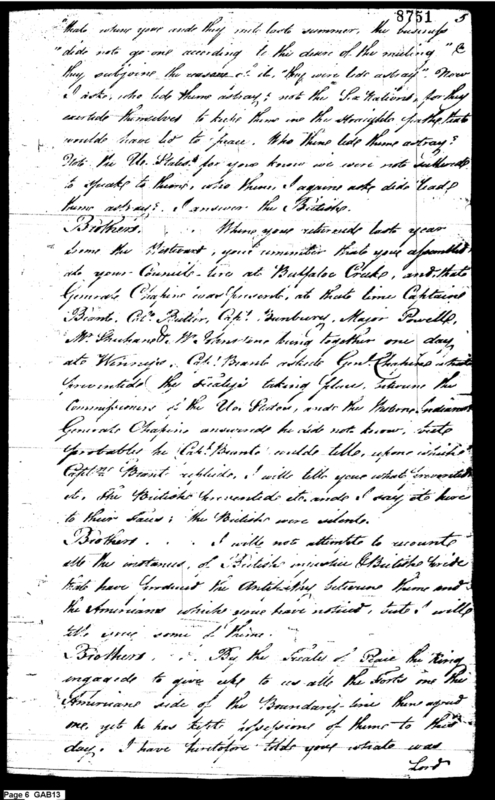 8751 5
"that when you and they met last summer, the business
"did not go on according to the desire of the meeting" &
they subjoine the reason of it, "they were led astray". Now
I ask, who led them astray? not the Six Nations, for they
exerted themselves to keep them in the straight path that
would have led to peace. Who then led them astray?
Not the Un. States for you know we were not suffered
to speak to them, who then, I again ask did lead
them astray? I answer the British.
Brothers. When you returned last year
from the Westward, you remember that you assembled
at your Council-fire at Buffaloe Creek, and that
General Chapin was present, at that time Captain
Brant, Col. Butler, Capt. Bunbury, Major Powell,
Mr. Street, Mr. being together one day
at Winney's. Capt. Brant asked Genl. Chapin what
prevented the Treaty's taking place, between the
Commissioners of the Un. States, and the Western Indians
General Chapin answered he did not know, but
probably he Capt. Brant could tell, upon which
Captn. Brant replied, I will tell you what prevented
it, the British prevented it and I say it here
to their faces; the British were silent.
Brothers. I will not attempt to recount
all the instances, of British & British pride
that have produced the Antipathy between them and
the Americans which you have noticed, but I will
tell you some of them.
Brothers. By the Treaty of Peace the King
engaged to give up to us all the Forts on the
American side of the Boundary line then agreed
on, yet he has kept possession of them to this
day. I have heretofore told you what was
Lord
Page 6 GAB13